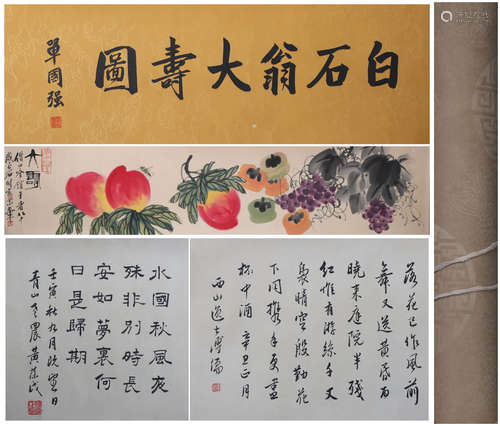 白石翁大壽圖
單國強
大壽
借山吟館主者八十
落花已作風前
舞又送黃昏雨
曉來庭院半殘
紅惟有游絲千丈
裊晴空殷勤花
下同攜手更盡
杯中酒 辛丑正月
西山逸士溥儒
水國秋風夜
殊非別時長
安如夢裏何
日是歸期
壬寅秋九月
青山老農黃葆戉